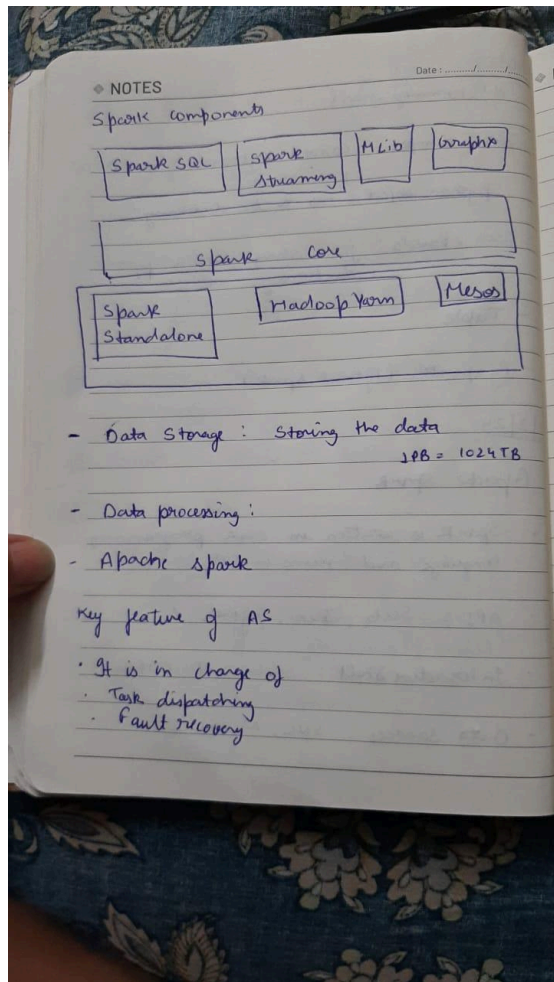 NOTES
Date : ......./......./.......
Spark components
Spark SQL
Spark
Streaming
MLib
Graphx
Spark Core
Spark
Standalone
Hadoop Yarn
Mesos
- Data Storage : Storing the data
1PB = 1024TB
- Data processing :
- Apache spark
Key feature of AS
· It is in charge of
· Task dispatching
· Fault recovery